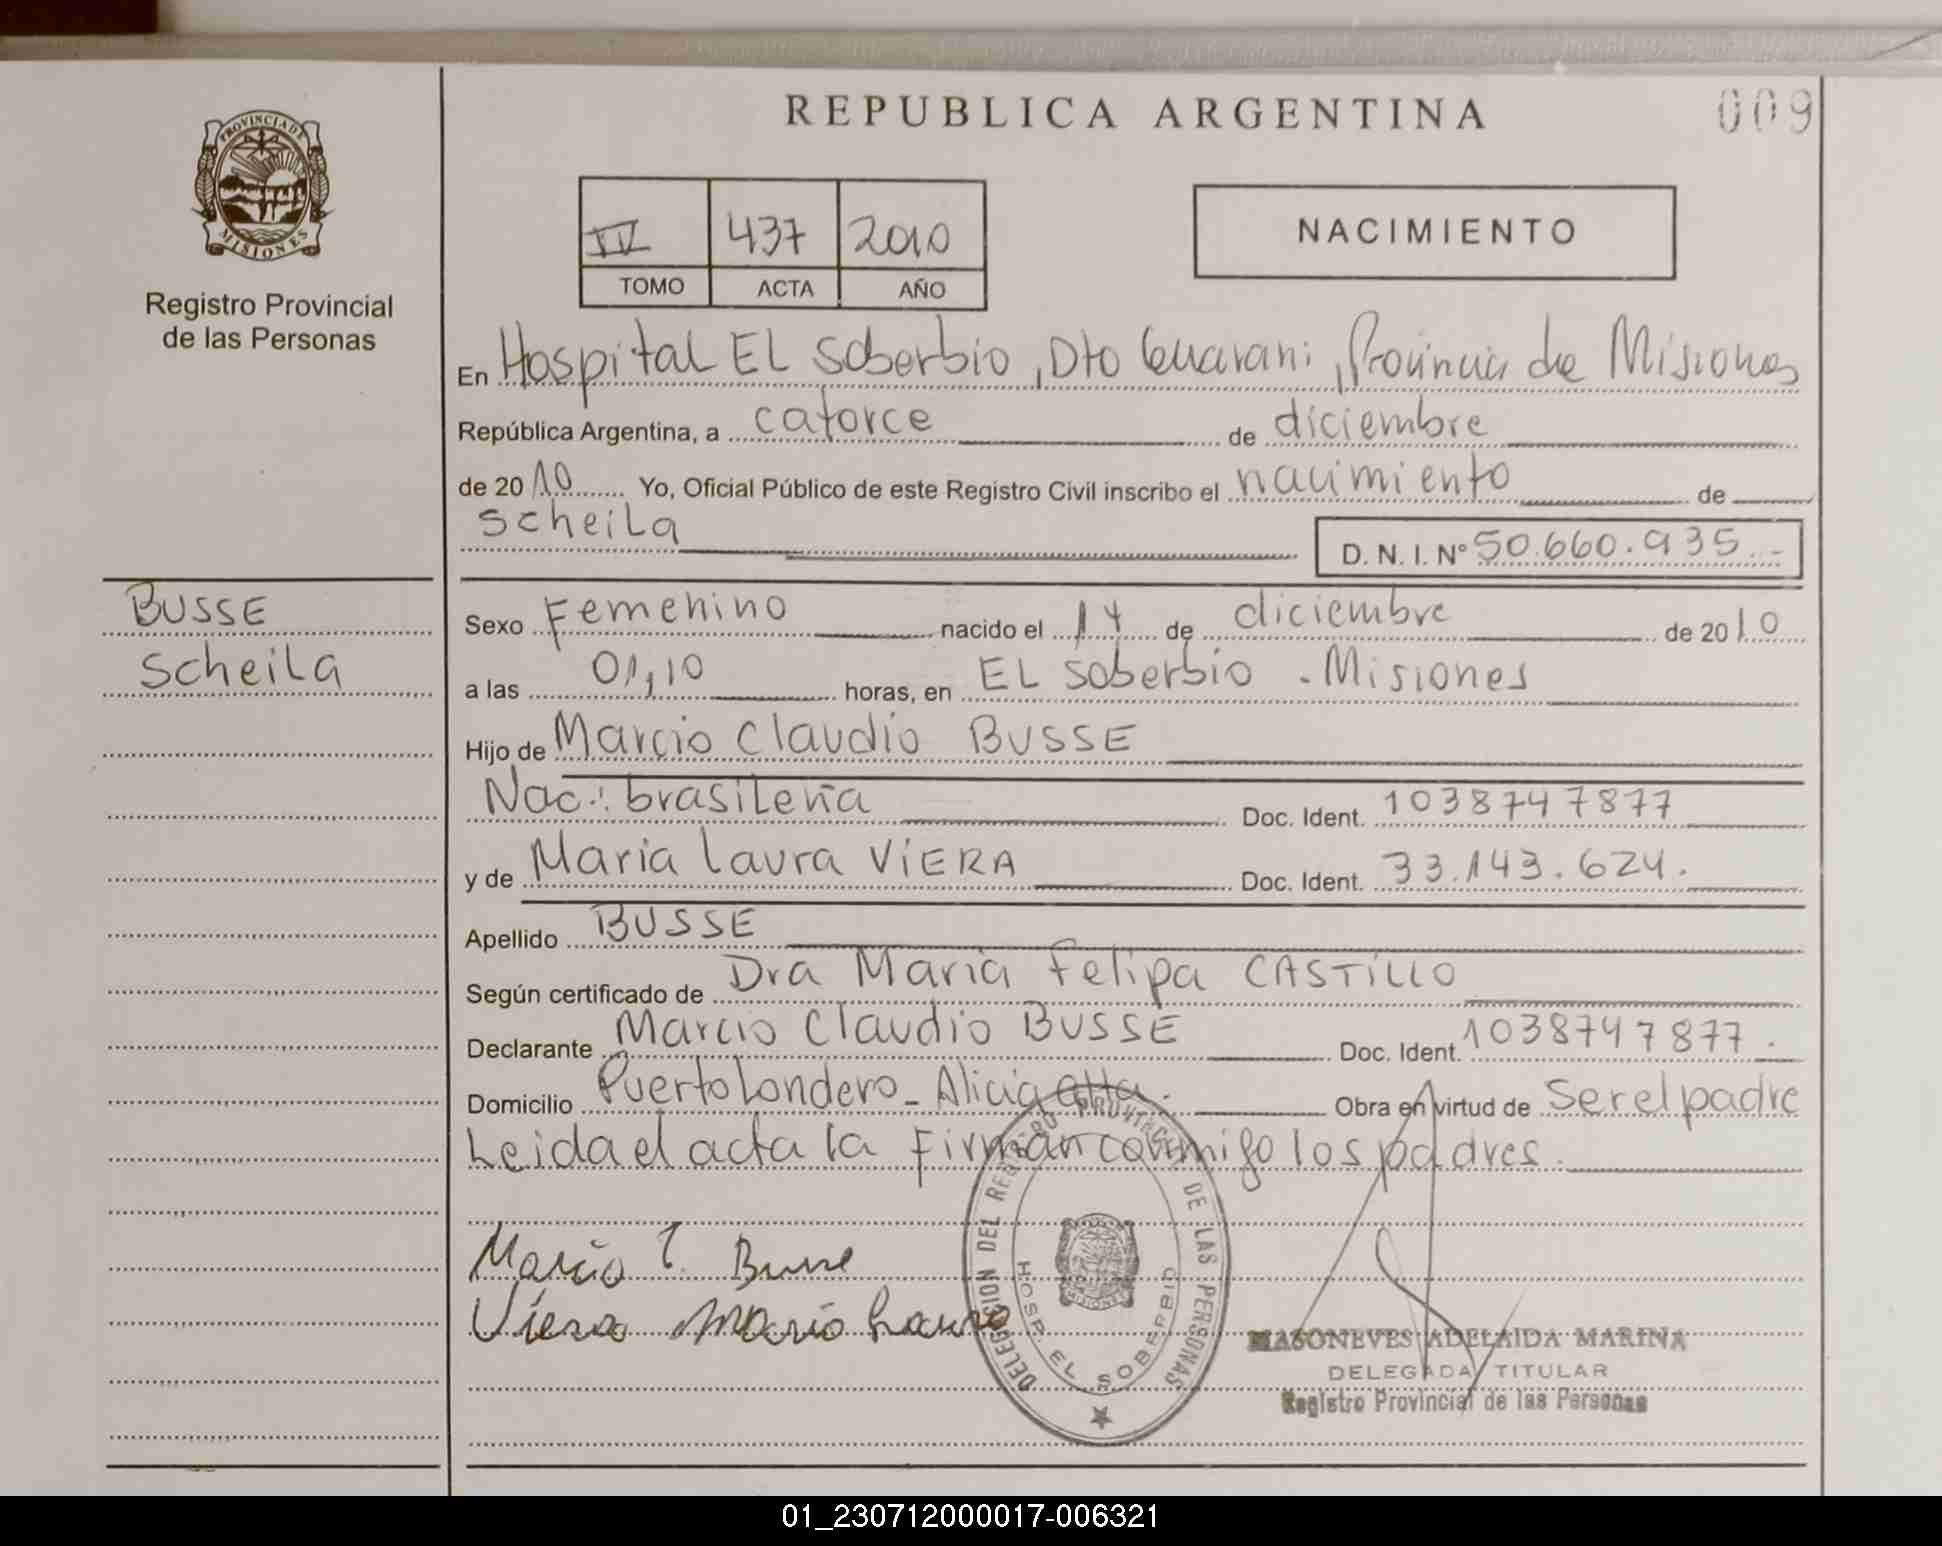 REPUBLICA ARGENTINA
009
PROVINCIA DE MISIONES
Registro Provincial
de las Personas
IV 437 2010
TOMO ACTA AÑO
NACIMIENTO
En Hospital EL Soberbio, Dto Guarani, Provincia de Misiones
República Argentina, a catorce de diciembre
de 2010 Yo, Oficial Público de este Registro Civil inscribo el nacimiento de
Scheila
D. N. I. Nº 50.660.935.-
BUSSE
Scheila
Sexo Femenino nacido el 14 de diciembre de 2010
a las 01,10 horas, en EL Soberbio - Misiones
Hijo de Marcio Claudio BUSSE
Nac.: brasileña Doc. Ident. 1038747877
y de Maria Laura VIERA Doc. Ident. 33.143.624.
Apellido BUSSE
Según certificado de Dra Maria Felipa CASTILLO
Declarante Marcio Claudio BUSSE Doc. Ident. 1038747877.
Domicilio Puerto Londero - Alicia Alta. Obra en virtud de Ser el padre
Leida el acta la Firman conmigo los padres.
Marcio C. Busse
Viera Maria Laura
DELEGACION DEL REGISTRO PROVINCIAL DE LAS PERSONAS
HOSP. EL SOBERBIO
MISIONES
MASONEVES ADELAIDA MARINA
DELEGADA TITULAR
Registro Provincial de las Personas
01_230712000017-006321